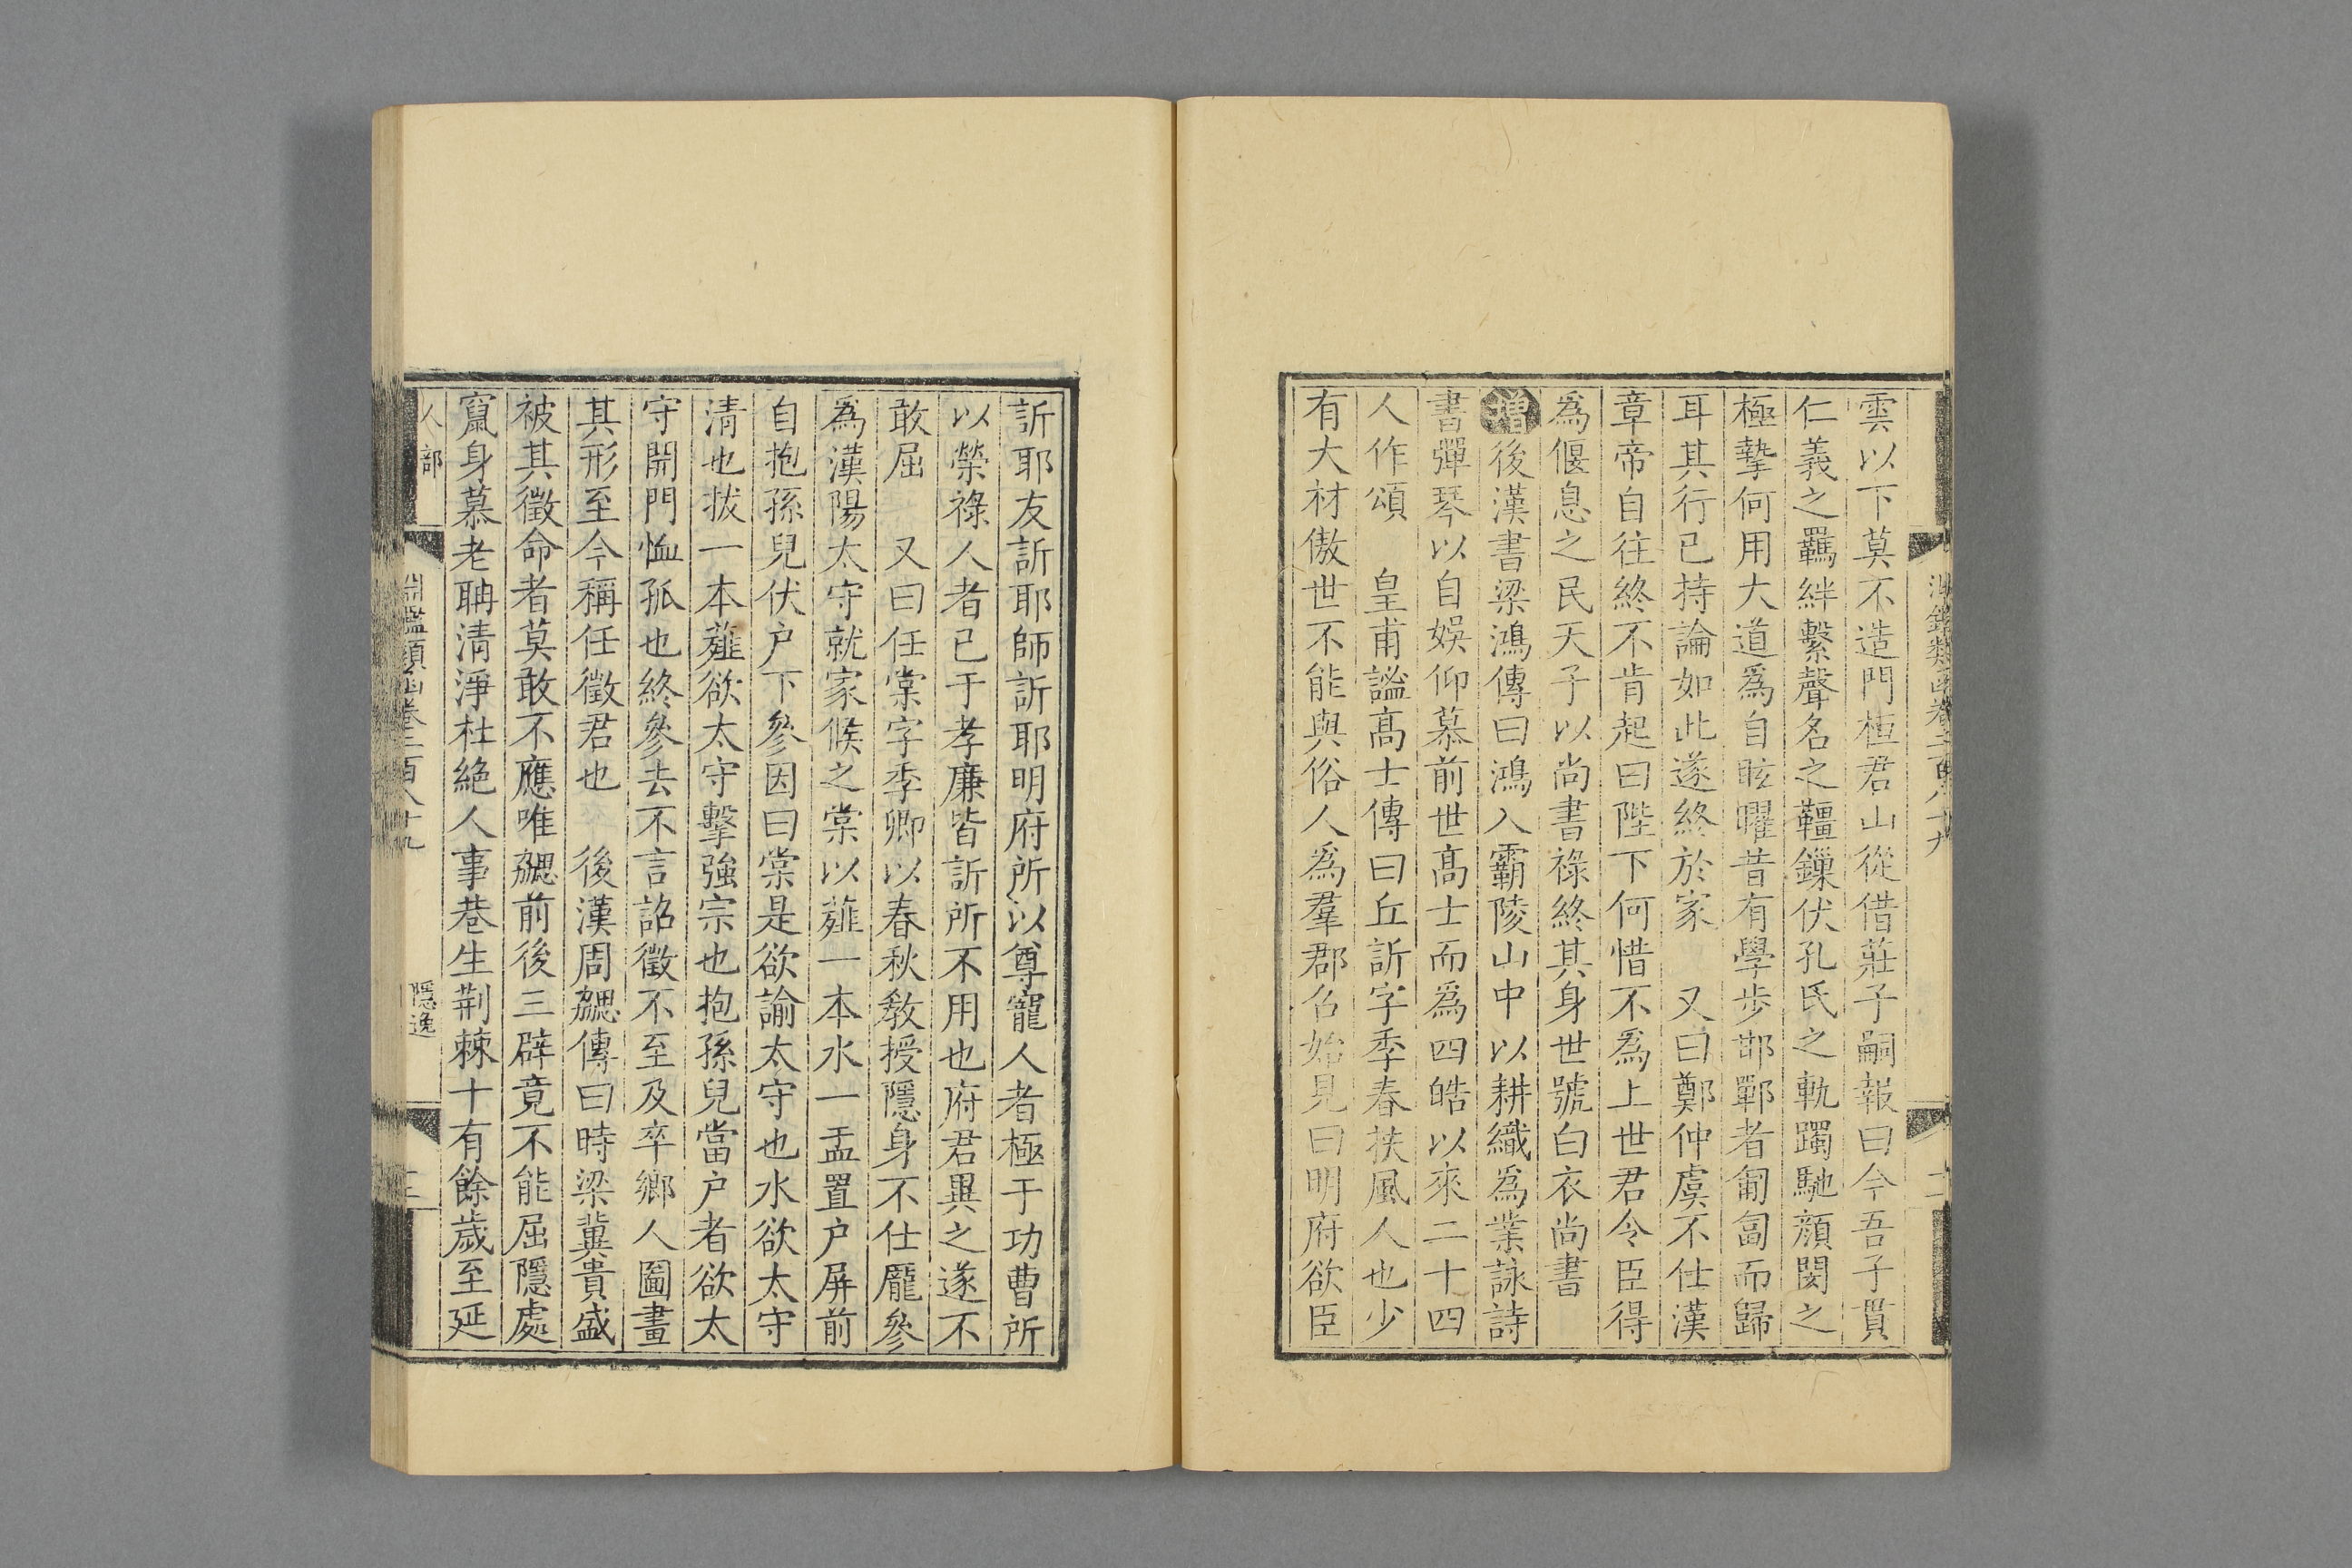 雲以下莫不造門桓君山從借莊子嗣報曰今吾子貫
仁義之羈絆繫聲名之韁鏁伏孔氏之軌躅馳顔閔之
極摯何用大道爲自眩曜昔有學步邯鄲者匍匐而歸
耳其行已持論如此遂終於家　又曰鄭仲虞不仕漢
章帝自往終不肯起曰陛下何惜不爲上世君令臣得
爲偃息之民天子以尚書祿終其身世號白衣尚書
增後漢書梁鴻傳曰鴻入霸陵山中以耕織爲業詠詩
書彈琴以自娛仰慕前世高士而爲四皓以來二十四
人作頌　皇甫謐高士傳曰丘訢字季春扶風人也少
有大材傲世不能與俗人爲羣郡召始見曰明府欲臣
訢耶友訢耶師訢耶明府所以尊寵人者極于功曹所
以榮祿人者已于孝廉皆訢所不用也府君異之遂不
敢屈　又曰任棠字季卿以春秋敎授隱身不仕龐參
爲漢陽太守就家候之棠以薤一本水一盂置户屏前
自抱孫兒伏户下參因曰棠是欲諭太守也水欲太守
清也拔一本薤欲太守擊強宗也抱孫兒當户者欲太
守開門恤孤也終參去不言詔徵不至及卒鄉人圖畫
其形至今稱任徵君也　後漢周勰傳曰時梁冀貴盛
被其徵命者莫敢不應唯勰前後三辟竟不能屈隱處
竄身慕老聃清淨杜絶人事巷生荆棘十有餘歲至延
人部
淵鑑類函卷二百八十九
隱逸